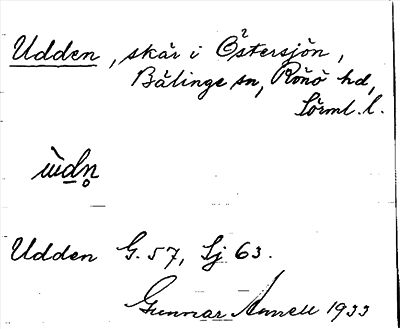 Udden, skär i Östersjön,
Bälinge sn, Rönö hd,
Sörml. l.
Udden G. 57, Sj 63.
Gunnar 1933